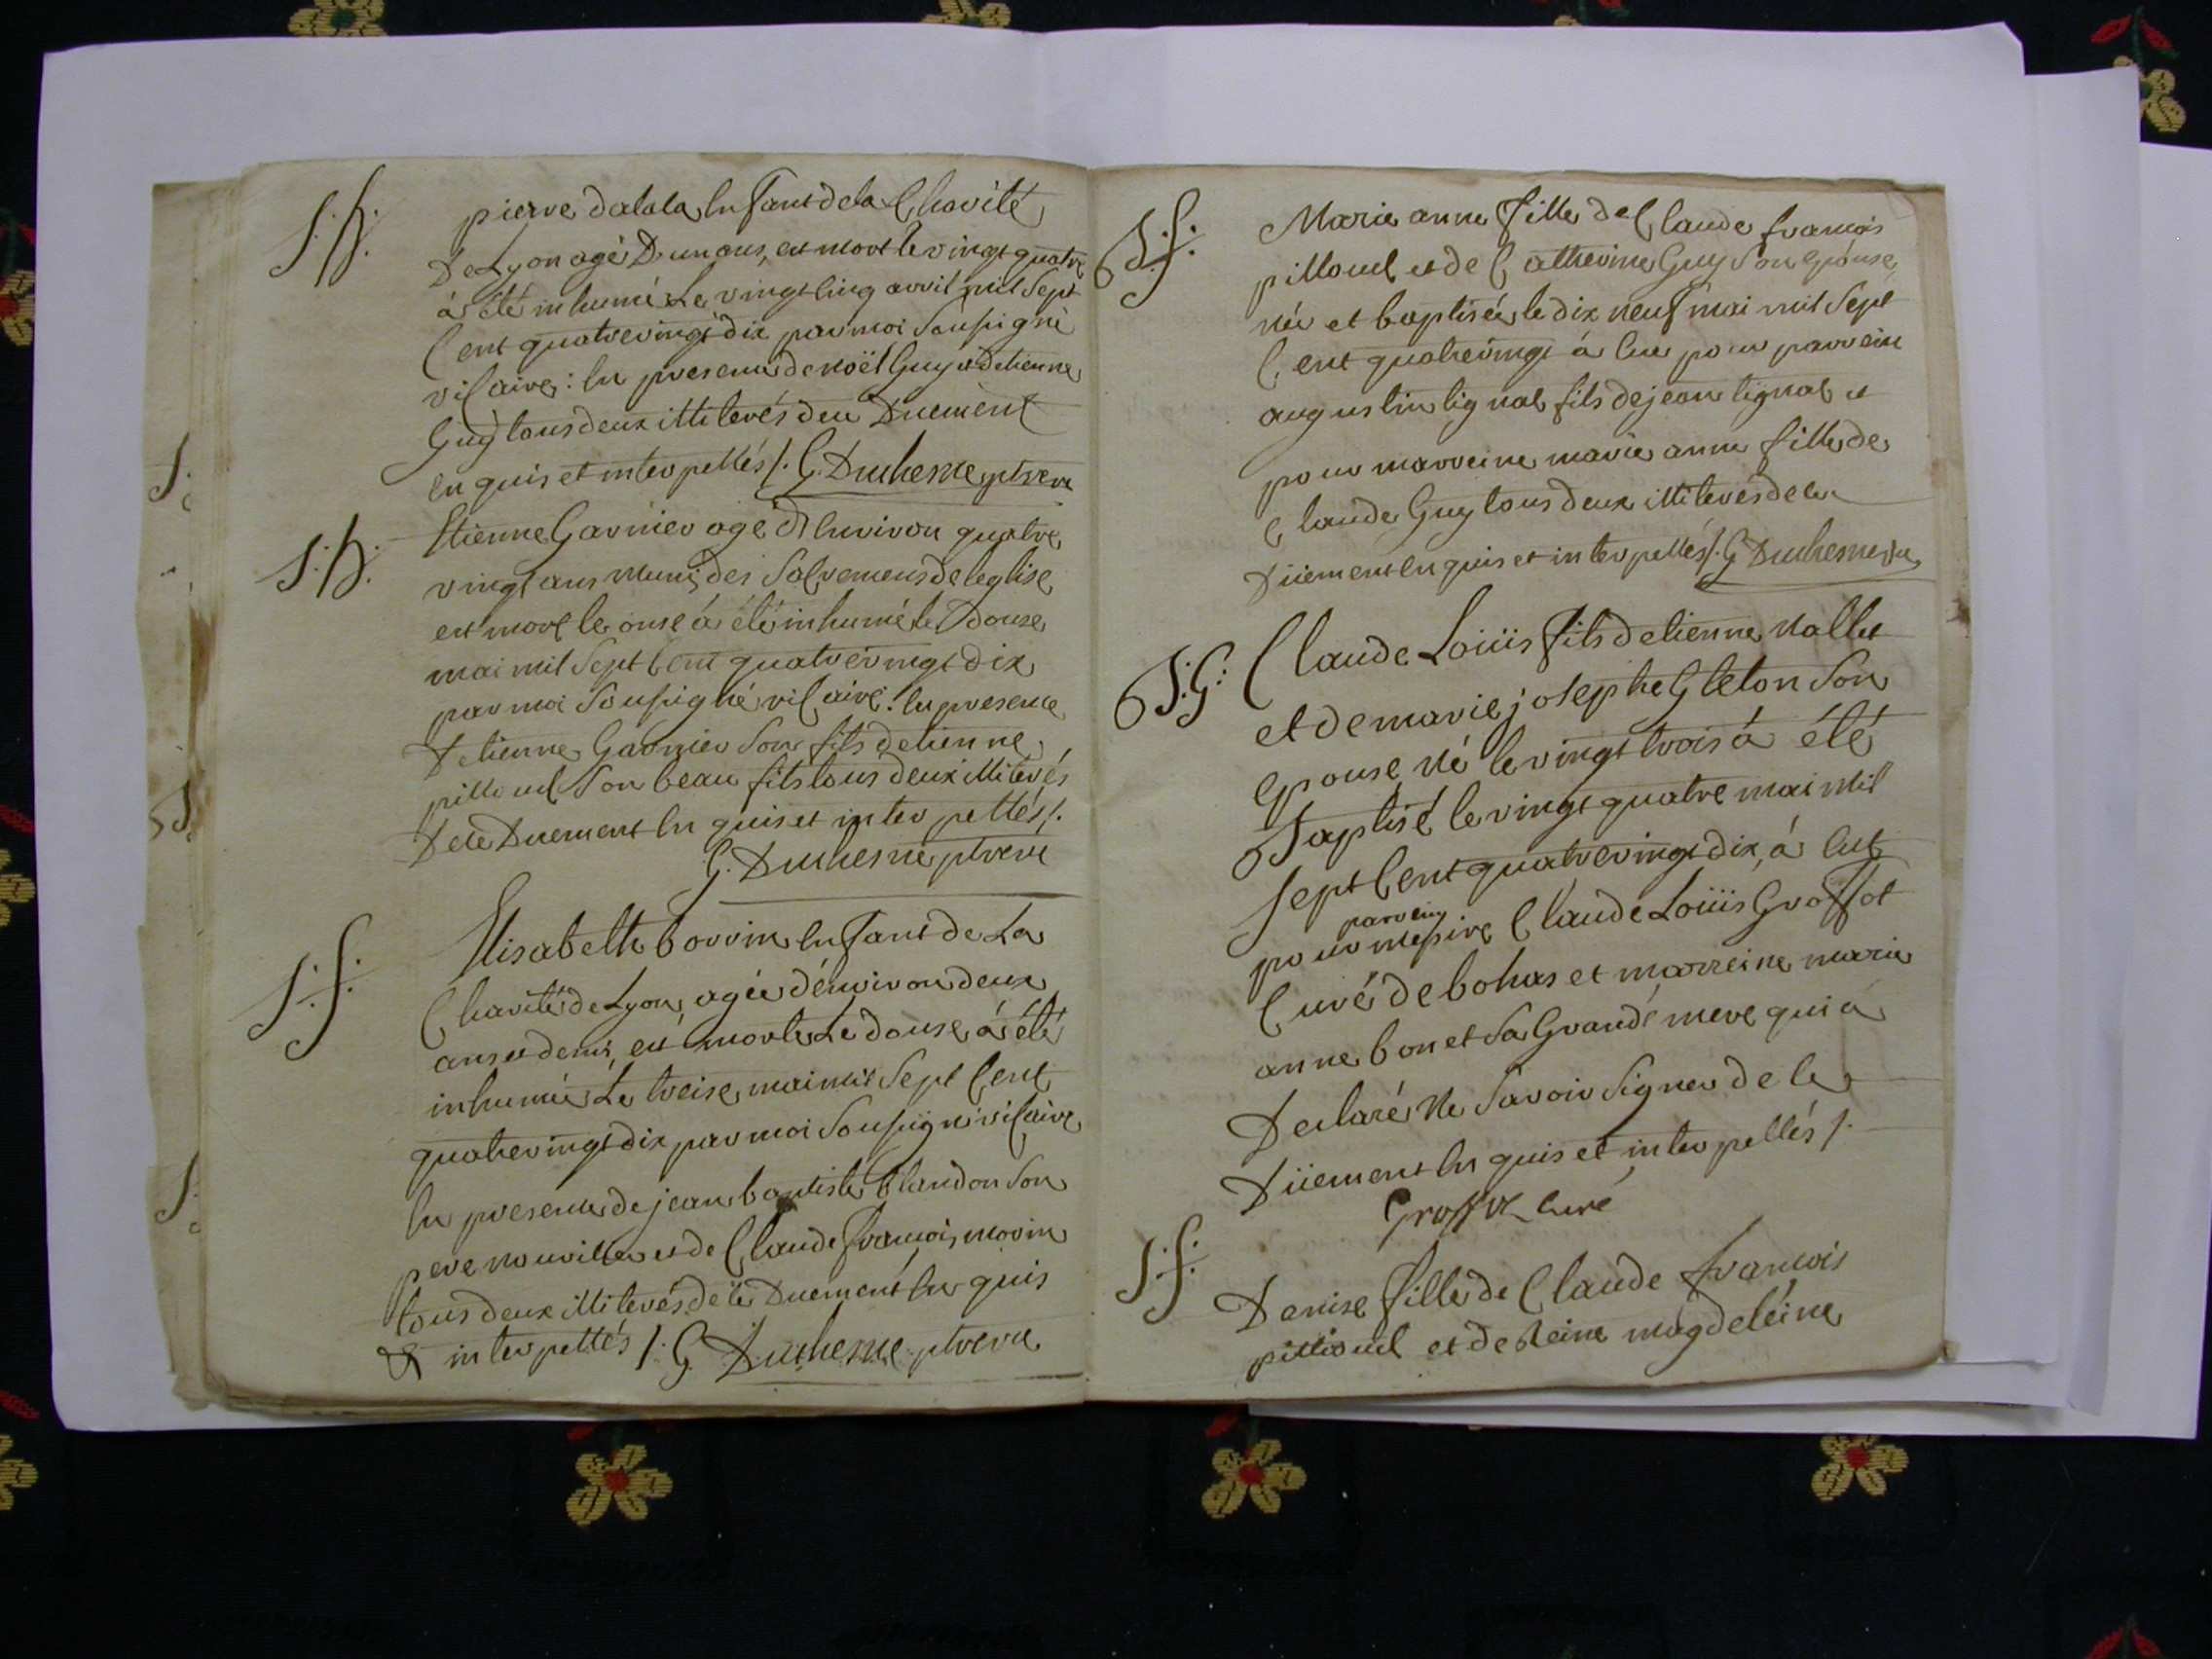 S. h.
pierre dalala enfant de la Charité
De Lyon agé D'un ans, est mort le vingt quatre
á été inhumé Le vingt cinq avril mil Sept
Cent quatrevingt dix par moi Soussigné
vicaire: en presence de noël Guy et d'etienne
Guy tous deux illiterés de ce Duement
enquis et interpellés /. G. Duchesne ptre vre
S. h.
Etienne Garnier agé D'environ quatre
vingt ans muni des Sacremens de leglise
est mort le onse á été inhumé le Douse
mai mil Sept Cent quatrevingt dix
par moi Soussigné vicaire: en presence
D'etienne Garnier Son fils d'etienne
pilloud Son beau fils tous deux illiterés
De ce Duement enquis et interpellés /.
G. Duchesne ptre vre
S. f.
Elisabeth borrin enfant de La
Charité de Lyon, agée d'environ deux
ans et demi, est morte Le douse á été
inhumée Le treise mai mil Sept Cent
quatrevingt dix par moi Soussigné vicaire
en presence de jean baptiste blandon Son
pere nourricier et de Claude francois morin
tous deux illiterés de ce Duement enquis
& interpellés /. G. Duchesne ptre vre
b S. f.
Marie anne fille de Claude francois
pilloud et de Catherine Guy Son epouse,
née et baptisée le dix neuf mai mil Sept
Cent quatrevingt á eu pour parrein
augustin tignat fils de jean tignat et
pour marreine marie anne fille de
Claude Guy tous deux illiterés de ce
Düement enquis et interpellés /. G Duchesne vre
b S. G.
Claude Loüis fils d'etienne nallet
et de marie josephe Gleton Son
epouse né le vingt trois á été
Baptisé le vingt quatre mai mil
Sept Cent quatrevingt dix, á eut
parrein
pour messire Claude Loüis Grossot
Curé de bohas et marreine marie
anne bonet Sa Grande mere qui á
Declaré Ne Savoir Signer de ce
Düement enquis et interpellés /.
Grossot curé
S. f.
Denise fille de Claude francois
pilloud et de Reine magdeleine